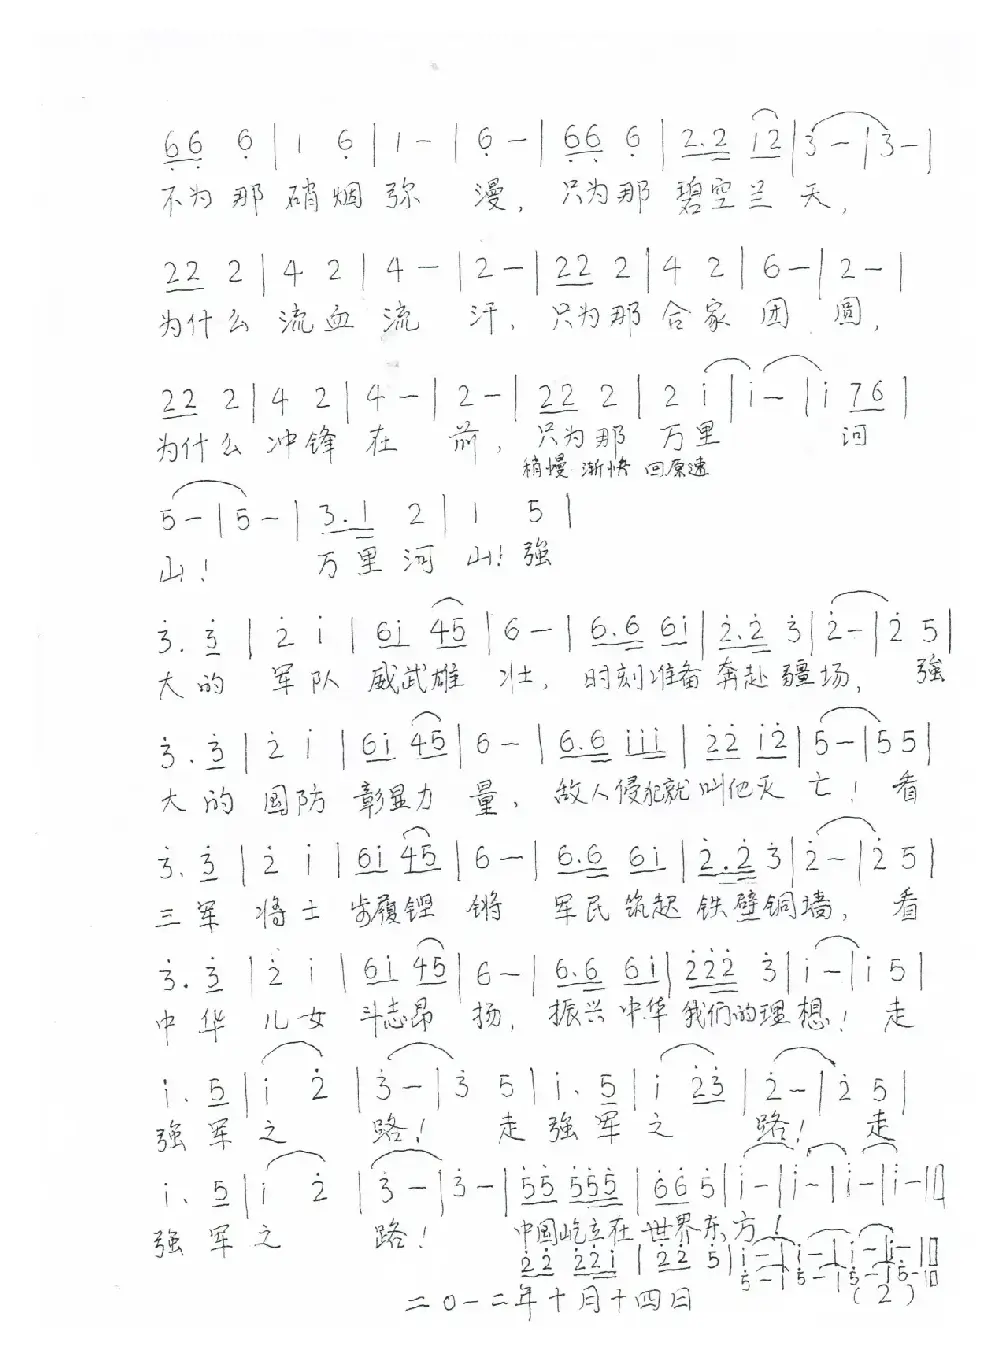 66 6 | 1 6 | 1 - | 6 - | 66 6 | 2.2 12 | 3 - | 3 - |
不为那硝烟弥漫，只为那碧空兰天，
22 2 | 4 2 | 4 - | 2 - | 22 2 | 4 2 | 6 - | 2 - |
为什么流血流汗，只为那合家团圆，
22 2 | 4 2 | 4 - | 2 - | 22 2 | 2 i | i - | i 76 |
为什么冲锋在前，只为那万里河
稍慢 渐快 回原速
5 - | 5 - | 3.1 2 | 1 5 |
山！万里河山！强
3. 3 | 2 i | 6i 45 | 6 - | 6.6 6i | 2.2 3 | 2 - | 2 5 |
大的军队威武雄壮，时刻准备奔赴疆场，强
3. 3 | 2 i | 6i 45 | 6 - | 6.6 iii | 22 i2 | 5 - | 5 5 |
大的国防彰显力量，敌人侵犯就叫他灭亡！看
3. 3 | 2 i | 6i 45 | 6 - | 6.6 6i | 2.2 3 | 2 - | 2 5 |
三军将士步履铿锵 军民筑起铁壁铜墙，看
3. 3 | 2 i | 6i 45 | 6 - | 6.6 6i | 222 3 | i - | i 5 |
中华儿女斗志昂扬，振兴中华我们的理想！走
i. 5 | i 2 | 3 - | 3 5 | i. 5 | i 23 | 2 - | 2 5 |
强军之路！走强军之路！走
i. 5 | i 2 | 3 - | 3 - | 55 555 | 66 5 | i - | i - | i - | i - ||
强军之路！中国屹立在世界东方！
22 22i | 22 5 | i - | i - | i - | i - ||
5 - | 5 - | 5 - | 5 - ||
二0一二年十月十四日
(2)